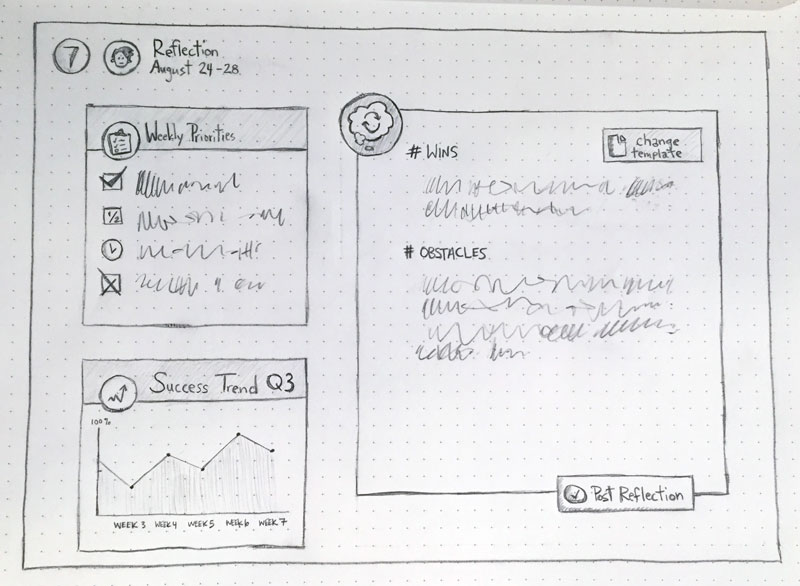 7
Reflection
August 24-28
Weekly Priorities
1/2
Success Trend Q3
100%
WEEK 3 WEEK 4 WEEK 5 WEEK 6 WEEK 7
# WINS
change
template
# OBSTACLES
Post Reflection